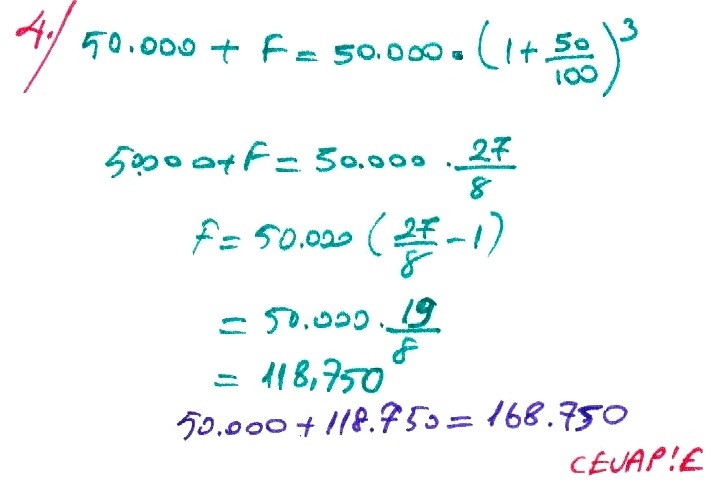 4./ 50.000 + F = 50.000 . (1 + 50/100)^3
50000 + F = 50.000 . 27/8
F = 50.000 (27/8 - 1)
= 50.000 . 19/8
= 118,750
50.000 + 118.750 = 168.750
CEVAP!E